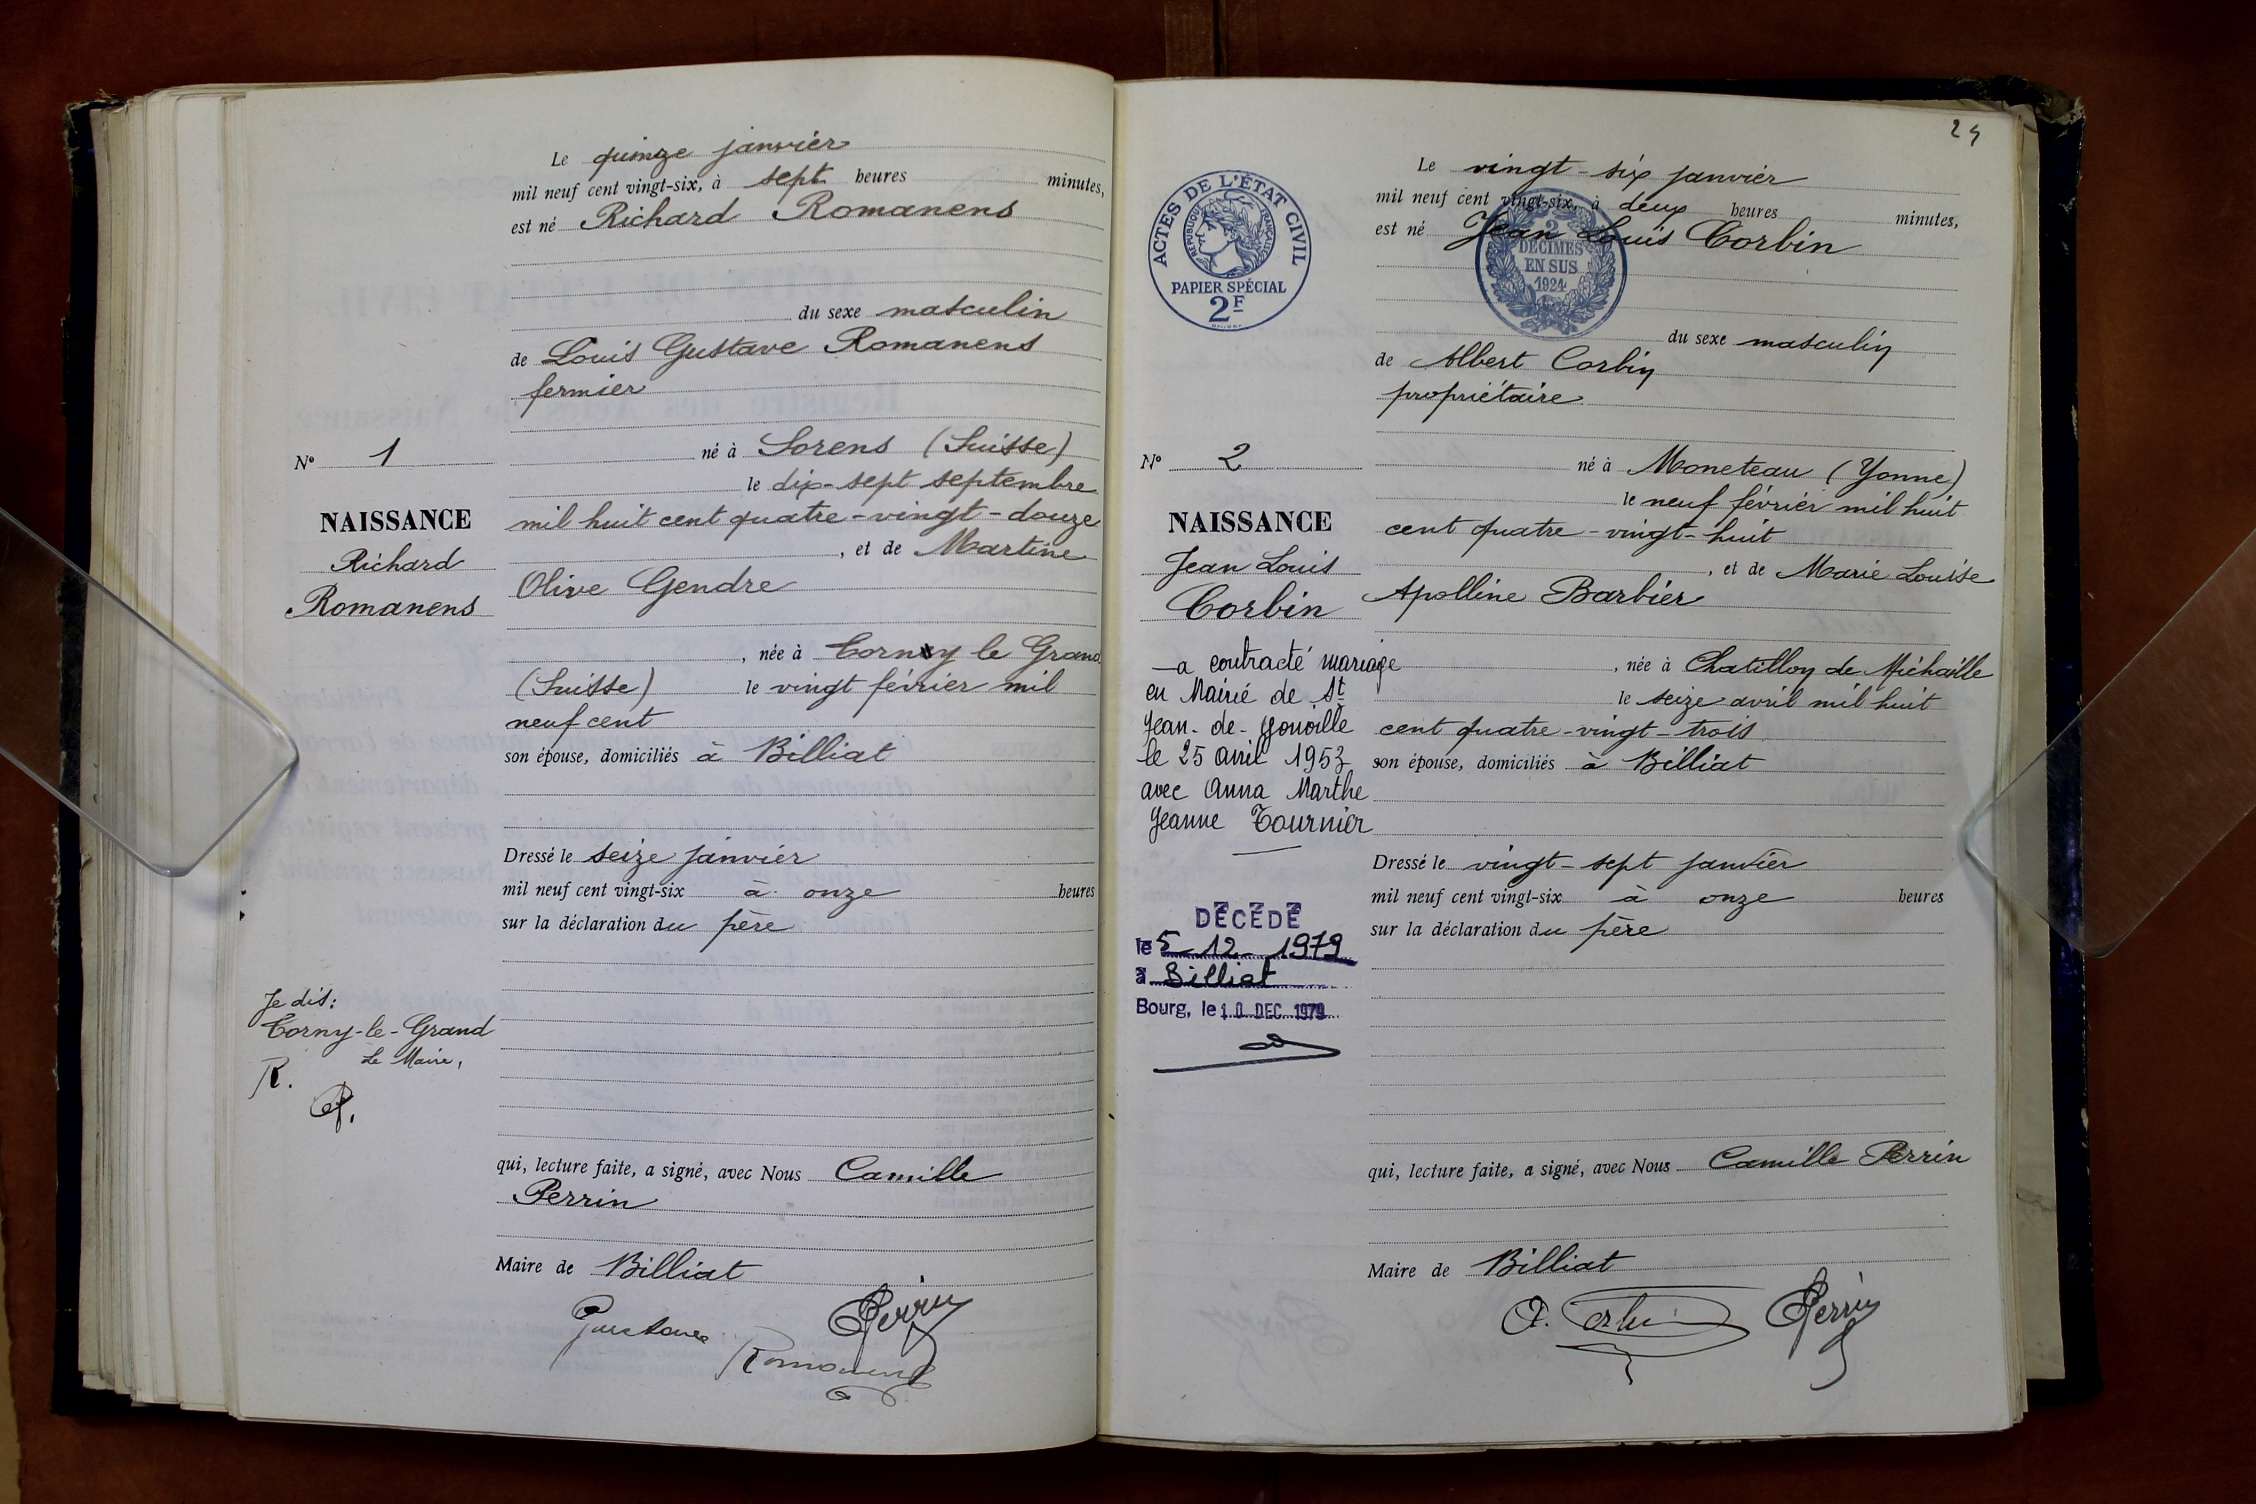 Le quinze janvier
mil neuf cent vingt-six, à sept heures minutes,
est né Richard Romanens
du sexe masculin
de Louis Gustave Romanens
fermier
N° 1
né à Sorens (Suisse)
le dix-sept septembre
mil huit cent quatre-vingt-douze
NAISSANCE
Richard
Romanens
, et de Martine
Olive Gendre
, née à Corny le Grand
(Suisse) le vingt février mil
neuf cent
son épouse, domiciliés à Billiat
Dressé le seize janvier
mil neuf cent vingt-six à onze heures
sur la déclaration du père
Je dis:
Corny-le-Grand
Le Maire,
R.
P.
qui, lecture faite, a signé, avec Nous Camille
Perrin
Maire de Billiat
Gustave
Perrin
Romanens
24
ACTES DE L'ÉTAT CIVIL
RÉPUBLIQUE FRANÇAISE
PAPIER SPÉCIAL
2F
2
DÉCIMES
EN SUS
1924
Le vingt-six janvier
mil neuf cent vingt-six, à deux heures minutes,
est né Jean Louis Corbin
du sexe masculin
de Albert Corbin
propriétaire
N° 2
né à Moneteau (Yonne)
le neuf février mil huit
cent quatre-vingt-huit
NAISSANCE
Jean Louis
Corbin
, et de Marie Louise
Apolline Barbier
, née à Chatillon de Michaille
le seize avril mil huit
cent quatre-vingt-trois
son épouse, domiciliés à Billiat
a contracté mariage
en Mairie de St
Jean-de-Gonville
le 25 avril 1953
avec Anna Marthe
Jeanne Tournier
Dressé le vingt-sept janvier
mil neuf cent vingt-six à onze heures
sur la déclaration du père
DÉCÉDÉ
le 5 12 1979
à Billiat
Bourg, le 10 DEC 1979
qui, lecture faite, a signé, avec Nous Camille Perrin
Maire de Billiat
A. Corbin
Perrin